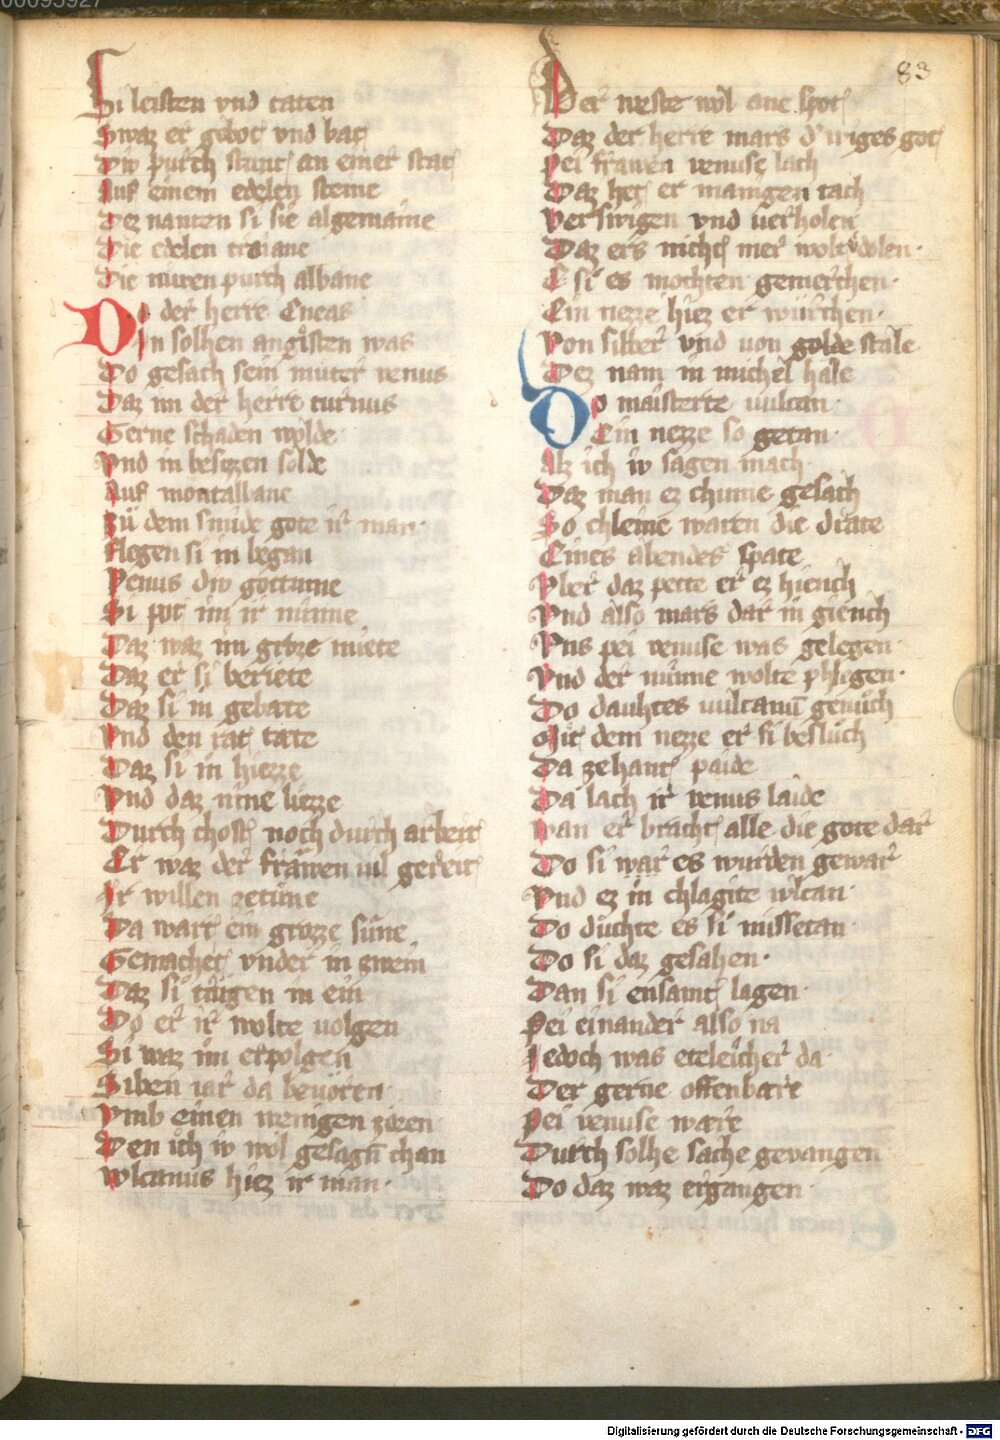 83
Si leisten vnd taten
Swaz er gebot vnd bat
Div purch stunt an einer stat
Auf einem edelen steine
Dez nanten si sie algemaine
Die edelen troiane
Die niwen purch albane
Do der herre Eneas
In solhen angsten was
Do gesach sein muter venus
Daz im der herre turnus
Gerne schaden wolde
Vnd in besezen solde
Auf montalbane
Zů dem smide gote ir man
flegen si in began
Venus div gottinne
Si pot im ir minne
Daz waz im groze miete
Daz er si beriete
Daz si in gebate
Vnd den rat tate
Daz si in hiezze
Vnd daz nine liezze
Durch chost noch durch arbeit
Er waz der frawen uil gereit
Ir willen zetůne
Da wart ein grozze sůne
Gemachet vnder in zwein
Daz si trůgen in ein
Do er ir wolte uolgen
Si waz im erpolgen
Siben iar da beuoren
Vmb einen wenigen zoren
Den ich iv wol gesagn chan
Wlcanus hiez ir man
Der weste wol ane spot
Daz der herre mars d wiges got
Pei frawen venuse lach
Daz het er manigen tach
Verswigen vnd uerholen
Daz ers nicht mer wolt dolen
E si es mochten gemerchen
Ein nezze hiez er würchen
Von silber vnd uon golde stale
Dez nam in michel hale
Do maisterte uulcan
Ein nezze so getan
Alz ich iv sagen mach
Daz man ez chume gesach
So chleine waren die drate
Eines abendes spate
Vber daz pette er ez hiench
Vnd also mars dar in giench
Vns pei venuse was gelegen
Vnd der minne wolte phlegen
Do dauhtes uulcanū genůch
Mit dem nezze er si beslůch
Da zehant paide
Da lach ir venus laide
Wan er bracht alle die gote dar
Do si war es wurden gewar
Vnd ez in chlagite wlcan
Do duchte es si missetan
Do si daz gesahen
Dan si ensamt lagen
Pei einander also na
Jedoch was etteleicher da
Der gerne offenbare
Pei venuse ware
Durch solhe sache geuangen
Do daz waz ergangen
Digitalisierung gefördert durch die Deutsche Forschungsgemeinschaft - DFG